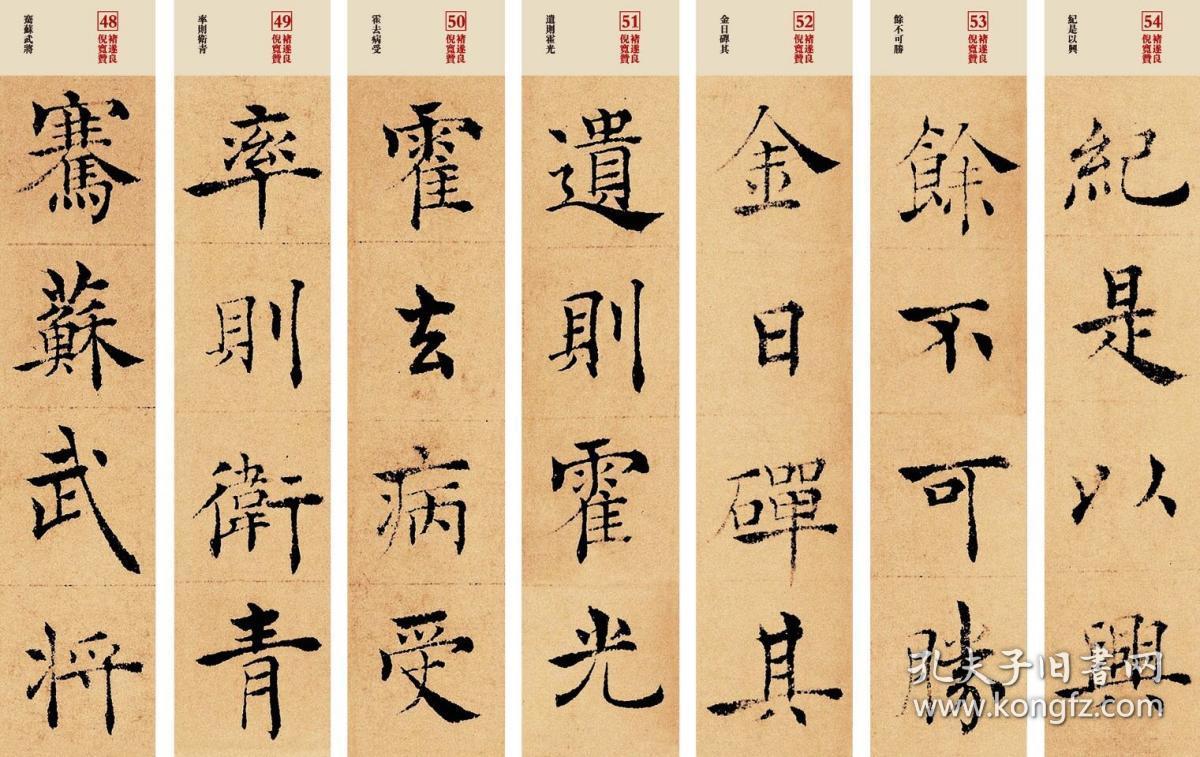 48
褚遂良
倪寬贊
騫蘇武將
騫蘇武将
49
褚遂良
倪寬贊
率則衛青
率則衛青
50
褚遂良
倪寬贊
霍去病受
霍去病受
51
褚遂良
倪寬贊
遺則霍光
遺則霍光
52
褚遂良
倪寬贊
金日磾其
金日磾其
53
褚遂良
倪寬贊
餘不可勝
餘不可勝
54
褚遂良
倪寬贊
紀是以興
紀是以興
孔夫子旧書网
www.kongfz.com